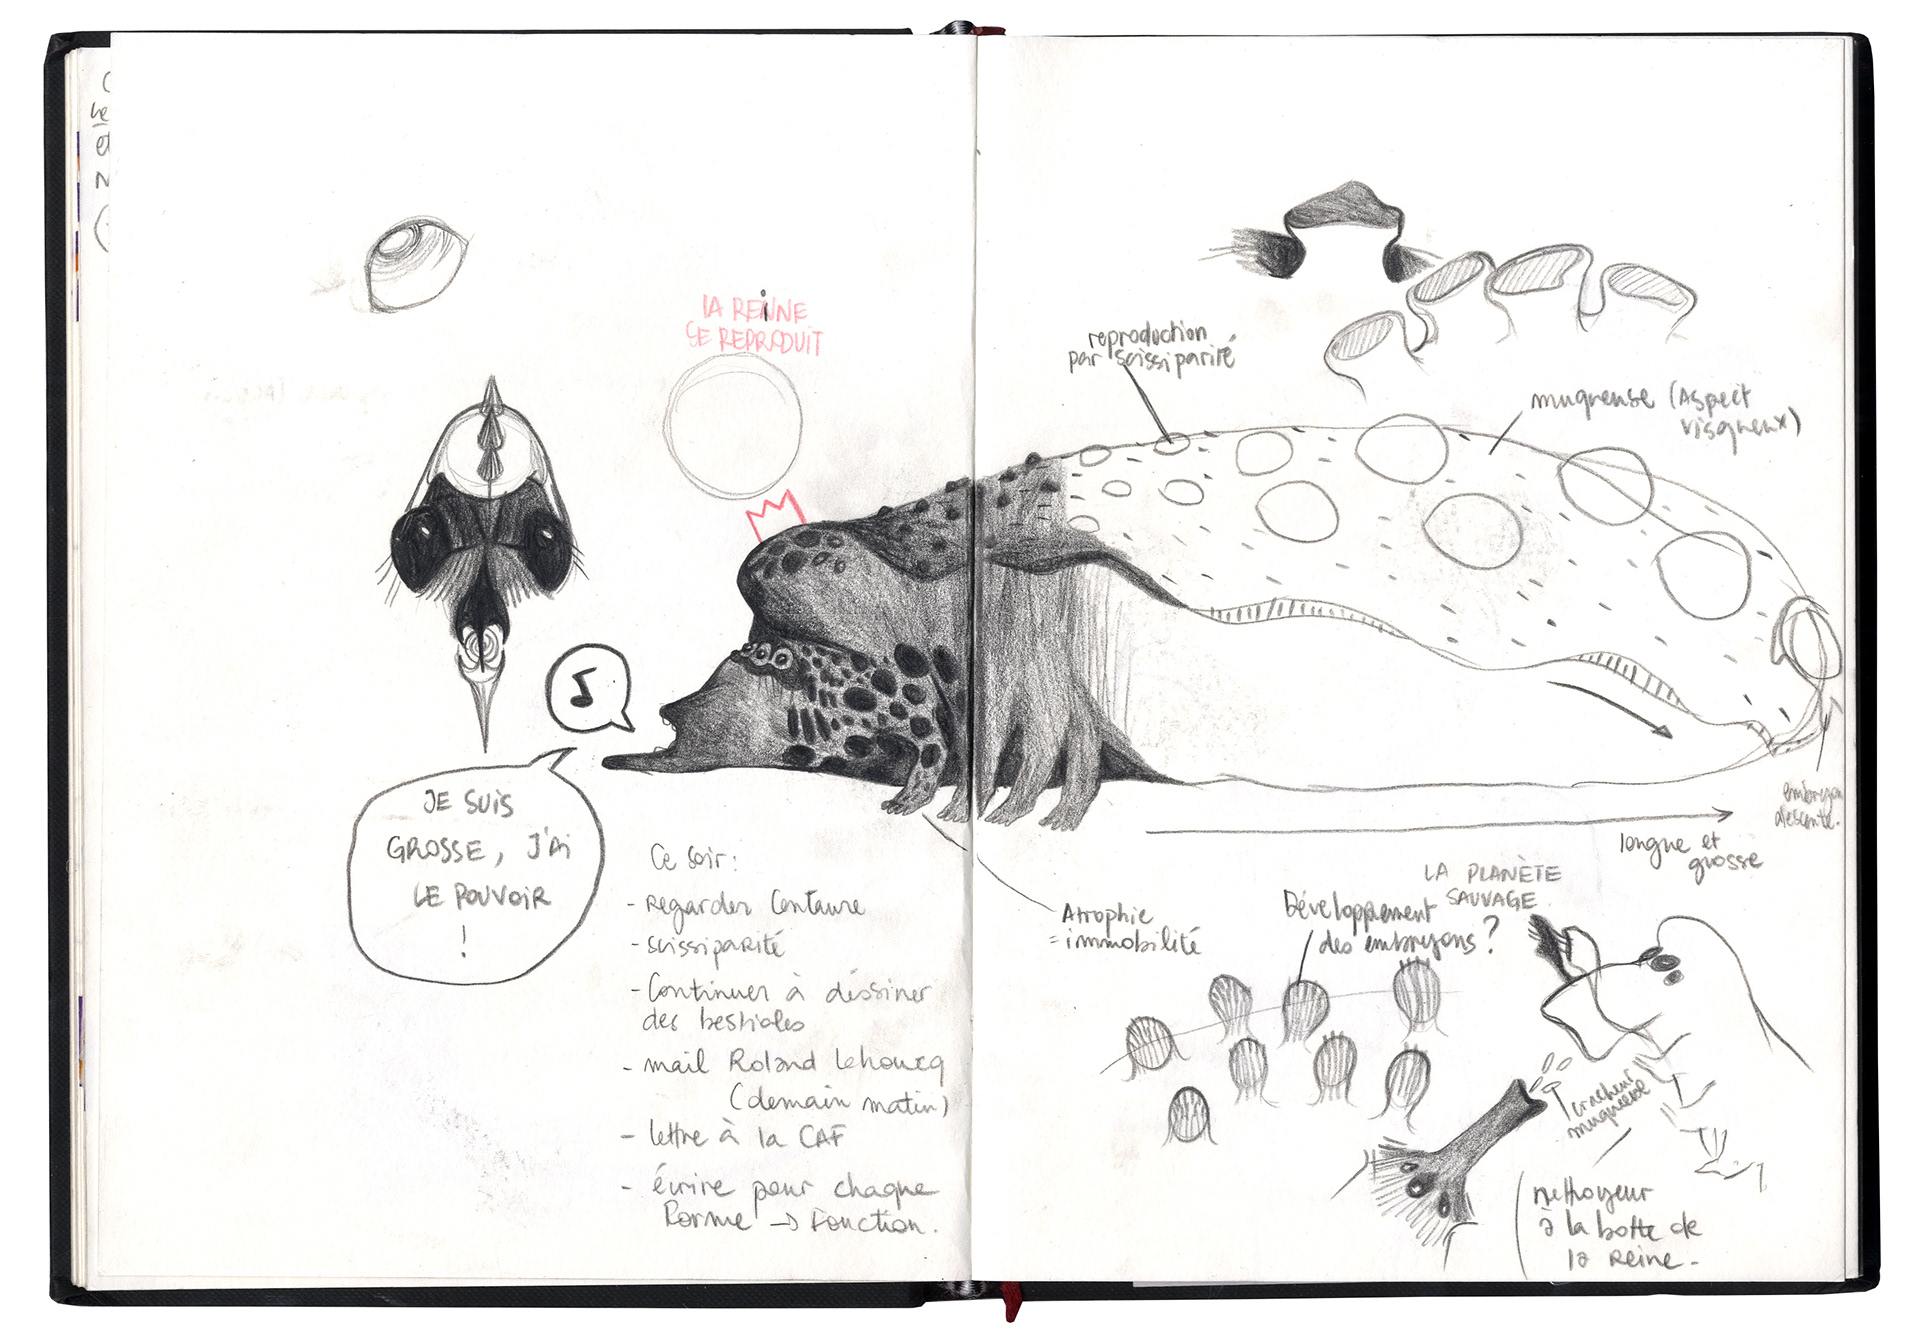 LA REiNNE
SE REPRODUIT
JE SUIS
GROSSE, J'AI
LE POUVOIR
!
Ce soir:
- regarder Centaure
- scissiparité
- Continuer à déssiner
des bestioles
- mail Roland Lehoucq
(demain matin)
- lettre à la CAF
- écrire pour chaque
Forme → Fonction.
reproduction
par scissiparité
muqueuse (Aspect
visqueux)
embryon
descente.
longue et
grosse
Atrophie
= immobilité
LA PLANÈTE
SAUVAGE
Développement
des embryons?
cracheur
muqueuse
nettoyeur
à la botte de
la reine.